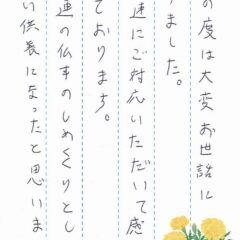 の度は大変お世話に
りました。
速にご対応いただいて感
ております。
連の仏事のしめくくりとし
い供養になったと思いま